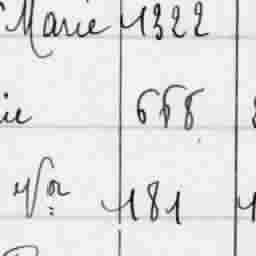 Marie 1322
ie 668
181